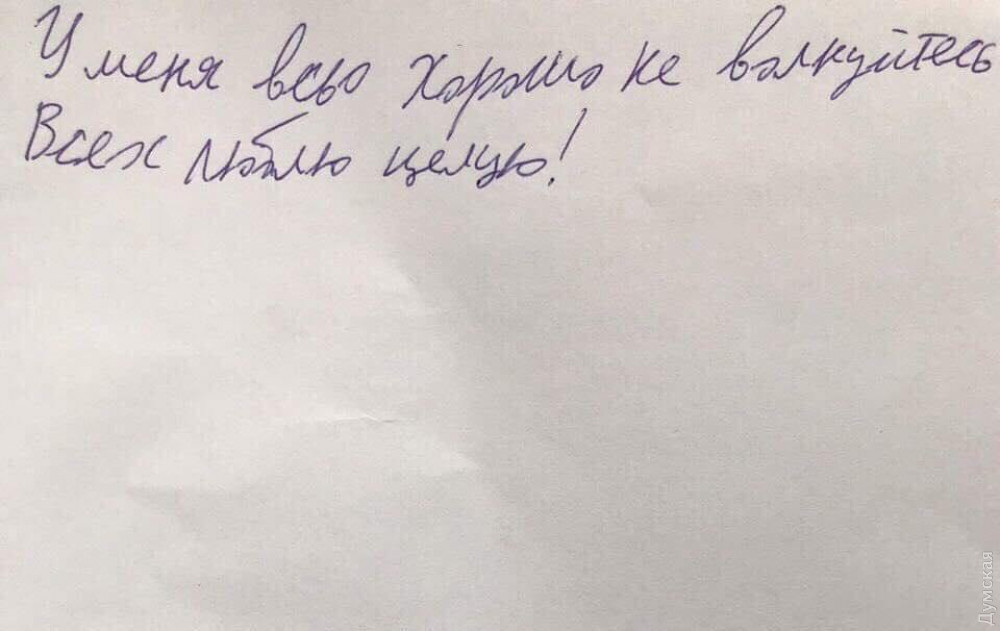 У меня всьо хорошо не волнуйтесь
Всех люблю целую!
Думская